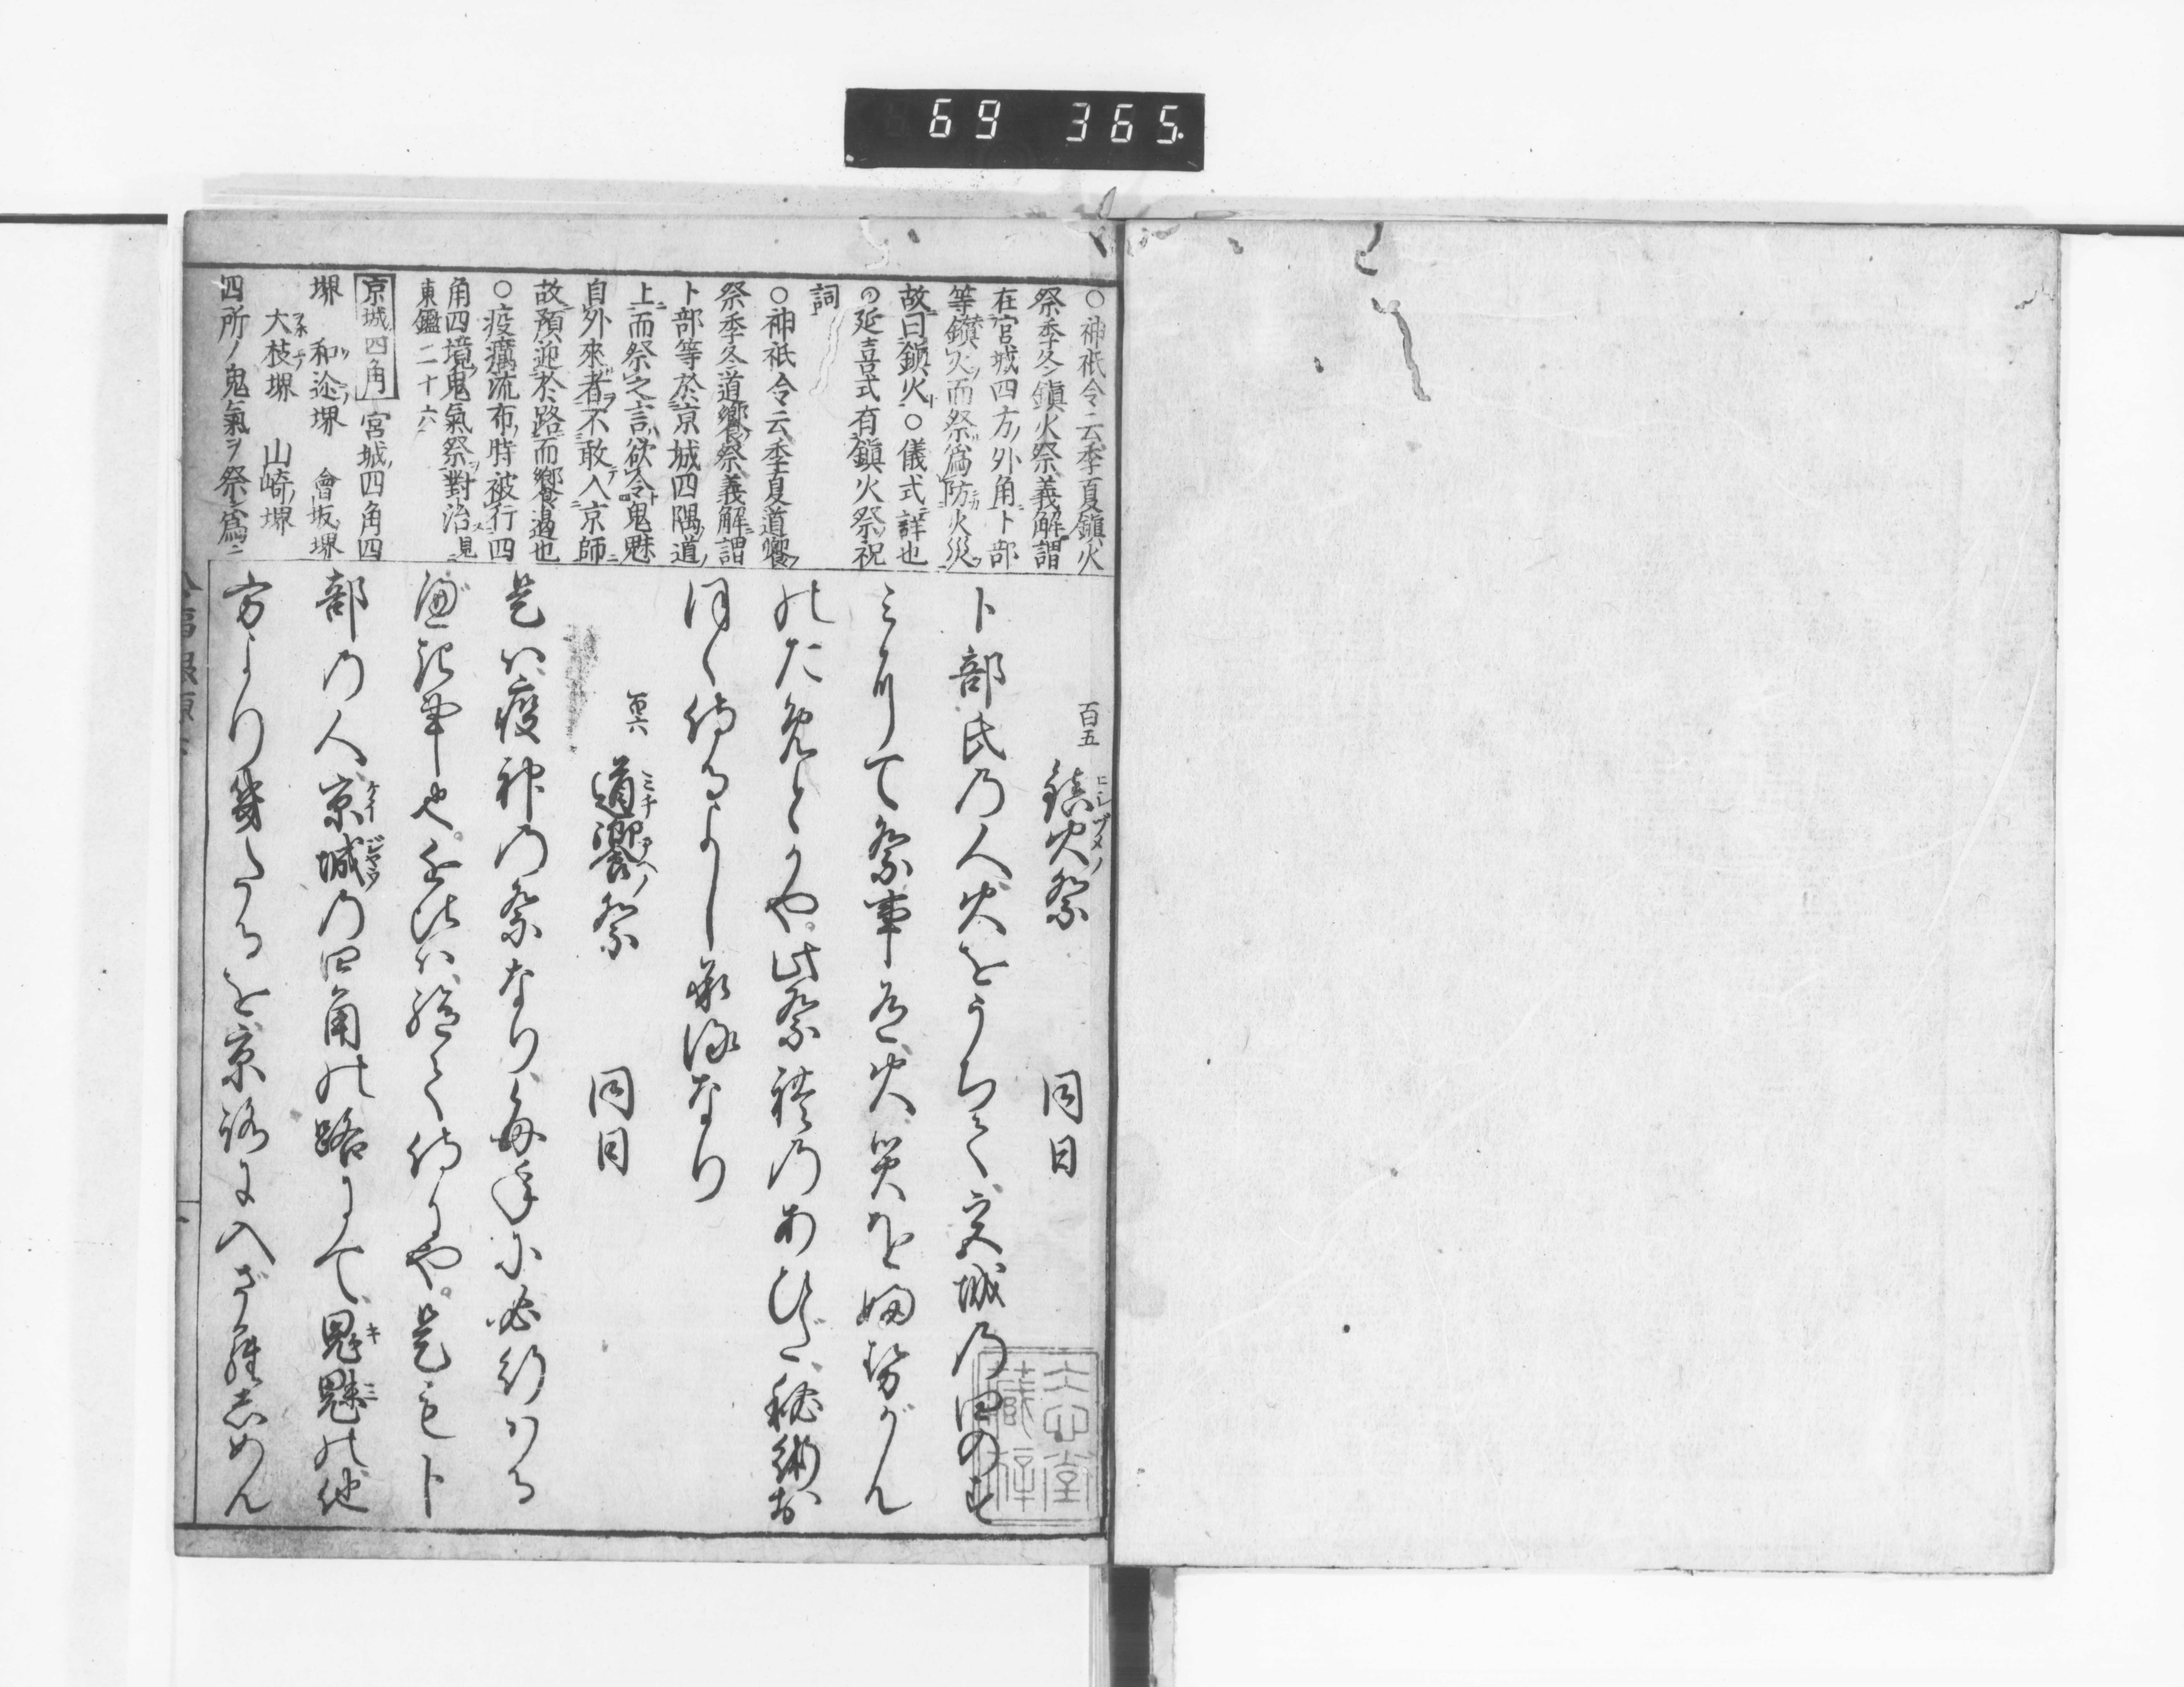 69 365.
○神祇令云季夏鎮火
祭季冬鎮火祭義解謂
在宮城四方外角卜部
等鑚火而祭爲防火災
故曰鎮火○儀式詳也
の延喜式有鎮火祭祝
詞
○神祇令云季夏道饗
祭季冬道饗祭義解謂
卜部等於京城四隅道
上而祭之言欲令鬼魅
自外來者不敢入京師
故預迎於路而饗遏也
○疫癘流布時被行四
角四境鬼氣祭對治見
東鑑二十六
京城四角 宮城四角四
堺 和迩堺 會坂堺
大枝堺 山崎堺
四所ノ鬼氣ヲ祭ン爲ニ
百五 鎮火祭 同日
卜部氏乃人火をうちて、宮城乃四のす
みにて祭事有火災をふせがん
のためとかや。此祭礼乃あひだ、秘術お
ほく侍るよし承伝なり
百六 道饗祭 同日
是ハ疫神乃祭なり、毎年に必行はる
べき事也。近比ハ絶て侍にや。是も卜
部乃人京城乃四角の路にて、鬼魅の他
方より来たるを京師に入ざらしめん